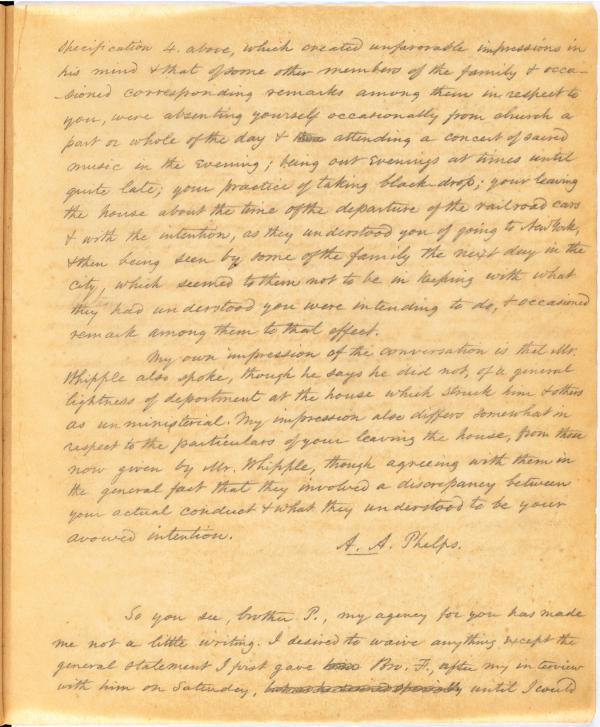 specification 4. above, which created unfavorable impressions in
his mind & that of some other members of the family & occa-
-sioned corresponding remarks among them in respect to
you, were absenting yourself occasionally from church a
part or whole of the day & attending a concert of sacred
music in the evening; being out Evenings at times until
quite late; your practice of taking black-drop; your leaving
the house about the time of the departure of the railroad cars
& with the intention, as they understood you of going to New York,
& then being seen by some of the family the next day in the
city, which seemed to them not to be in keeping with what
they had understood you were intending to do, & occasioned
remark among them to that effect.
My own impression of the conversation is that Mr.
Whipple also spoke, though he says he did not, of a general
lightness of deportment at the house which struck him & others
as unministerial. My impression also differs somewhat in
respect to the particulars of your leaving the house, from those
now given by Mr. Whipple, though agreeing with them in
the general fact that they involved a discrepancy between
your actual conduct & what they understood to be your
avowed intention.
A. A. Phelps.
So you see, brother P., my agency for you has made
me not a little writing. I desired to waive anything except the
general statement I first gave Bro. F., after my interview
with him on Saturday, until I could